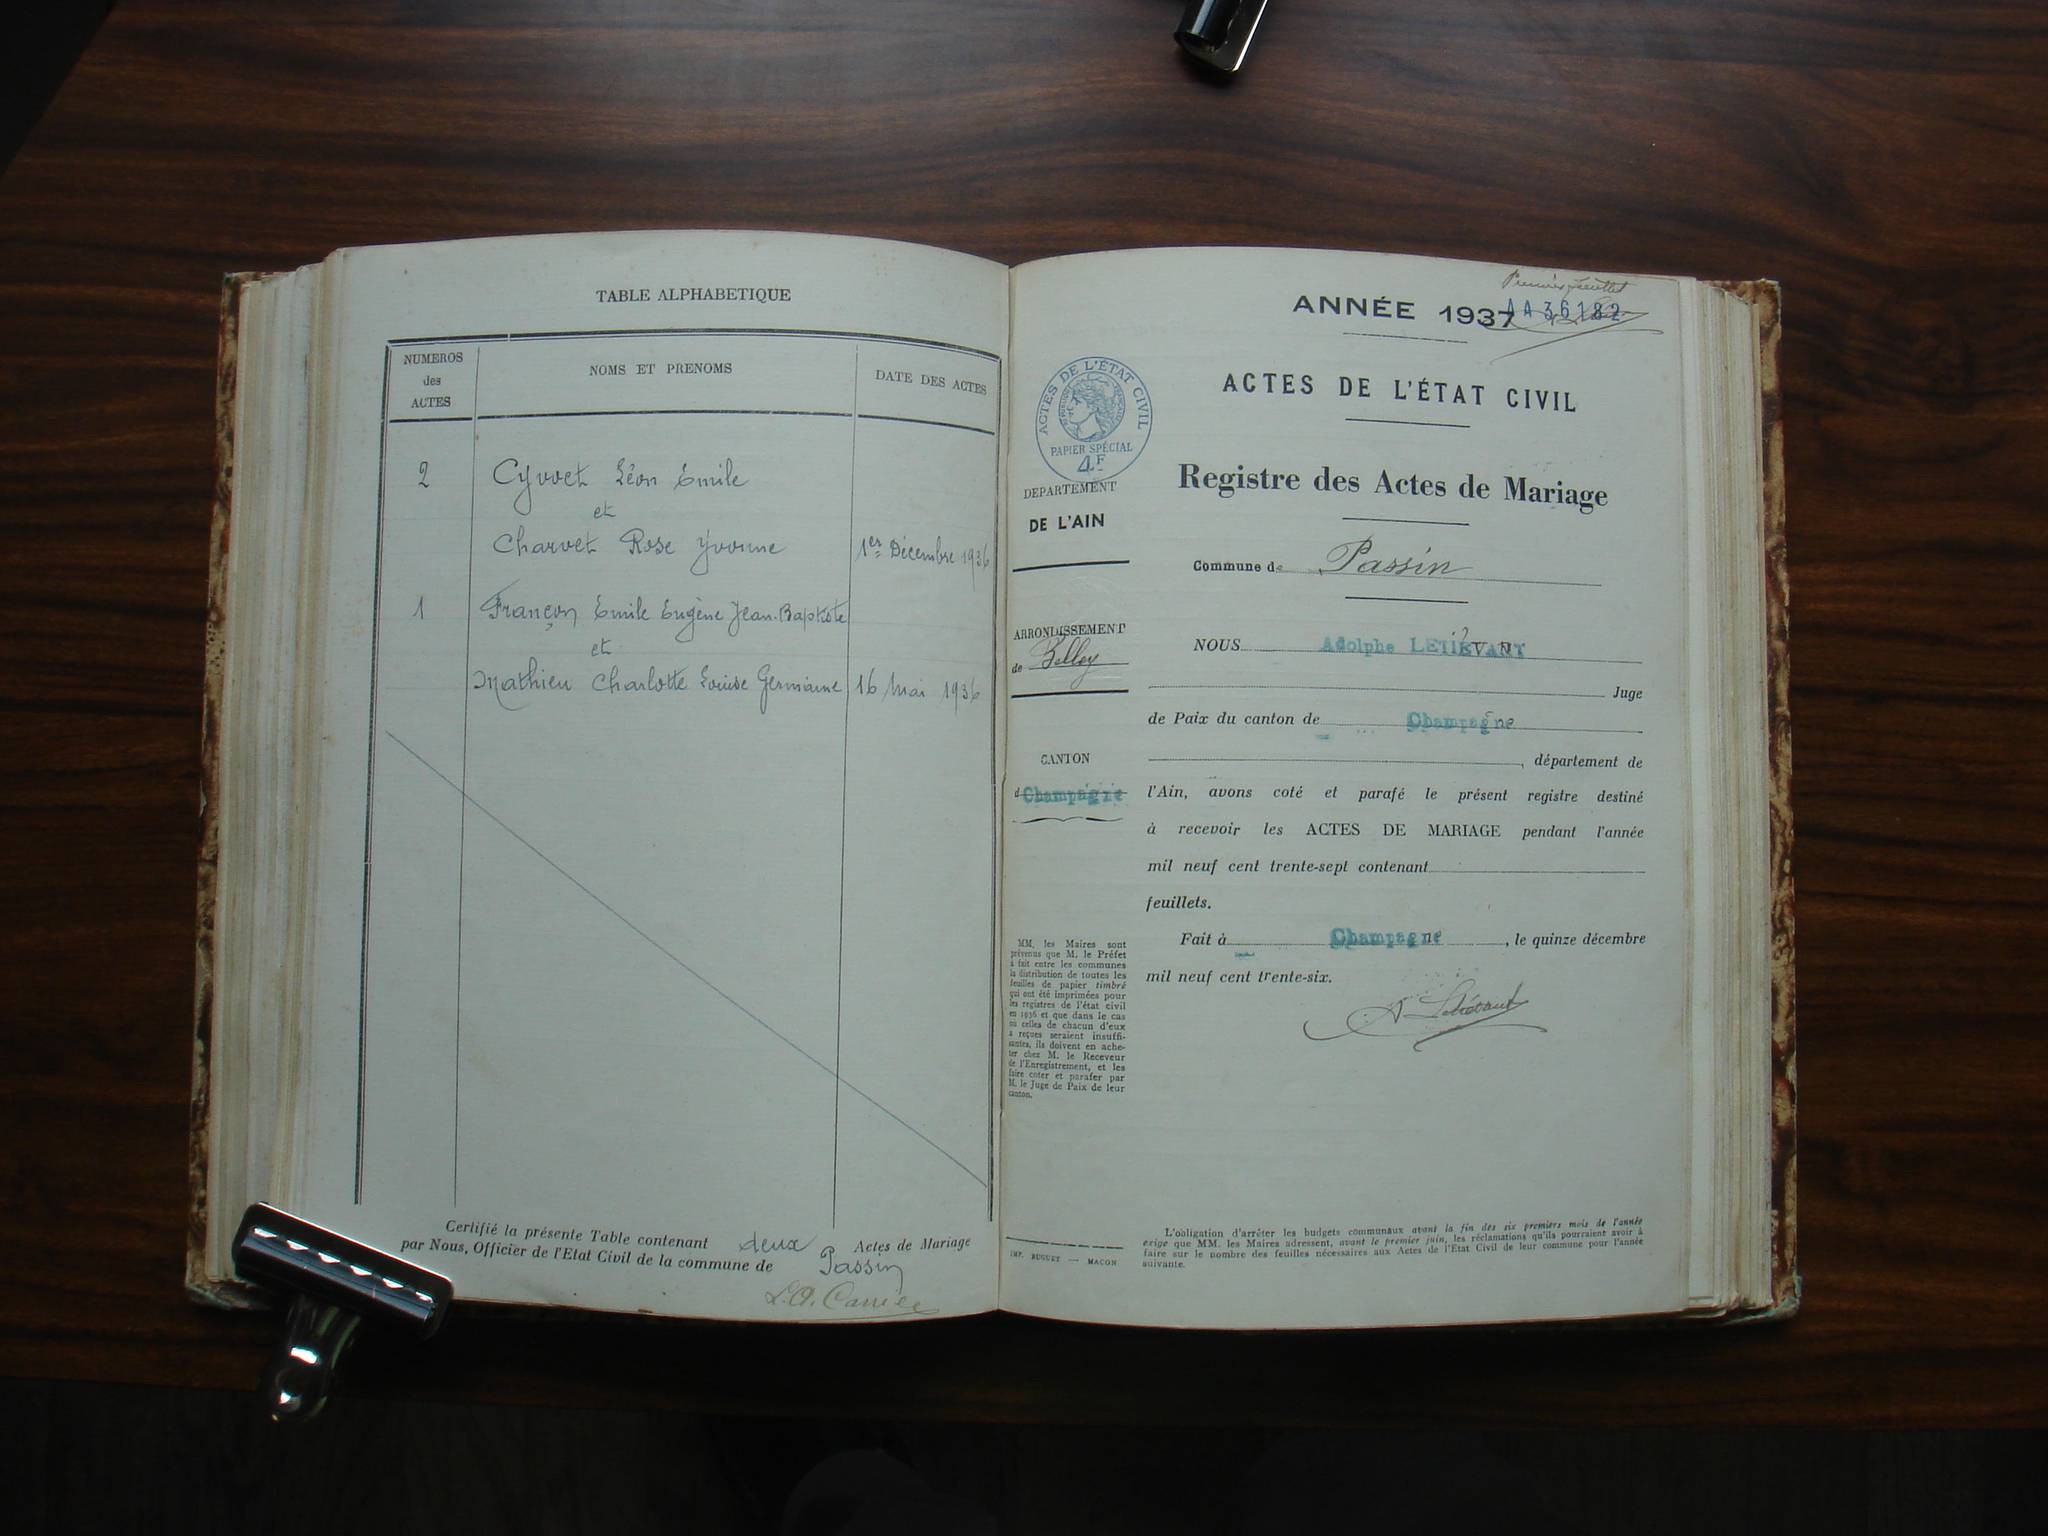 TABLE ALPHABETIQUE
NUMEROS
des
ACTES
NOMS ET PRENOMS
DATE DES ACTES
2 Cyvoct Léon Emile
et
Charvet Rose Yvonne 1er Décembre 1936
1 Françon Emile Eugène Jean-Baptiste
et
Mathieu Charlotte Louise Germaine 16 Mai 1936
Certifié la présente Table contenant deux Actes de Mariage
par Nous, Officier de l'Etat Civil de la commune de Passin
Premier feuillet
ANNÉE 1937 AA 36182
ACTES DE L'ÉTAT CIVIL
RÉPUBLIQUE FRANÇAISE
PAPIER SPÉCIAL
4F
ACTES DE L'ÉTAT CIVIL
Registre des Actes de Mariage
DEPARTEMENT
DE L'AIN
Commune de Passin
ARRONDISSEMENT
de Belley
NOUS Adolphe LETIÉVANT
Juge
de Paix du canton de Champagne
CANTON
d Champagne
, département de
l'Ain, avons coté et parafé le présent registre destiné
à recevoir les ACTES DE MARIAGE pendant l'année
mil neuf cent trente-sept contenant
feuillets.
Fait à Champagne, le quinze décembre
mil neuf cent trente-six.
A Letiévant
MM. les Maires sont
prévenus que M. le Préfet
a fait entre les communes
la distribution de toutes les
feuilles de papier timbré
qui ont été imprimées pour
les registres de l'état civil
en 1936 et que dans le cas
où celles de chacun d'eux
a reçues seraient insuffi-
santes, ils doivent en ache-
ter chez M. le Receveur
de l'Enregistrement, et les
faire coter et parafer par
M. le Juge de Paix de leur
canton.
IMP. BUGUET — MACON
L'obligation d'arrêter les budgets communaux avant la fin des six premiers mois de l'année
exige que MM. les Maires adressent, avant le premier juin, les réclamations qu'ils pourraient avoir à
faire sur le nombre des feuilles nécessaires aux Actes de l'Etat Civil de leur commune pour l'année
suivante.